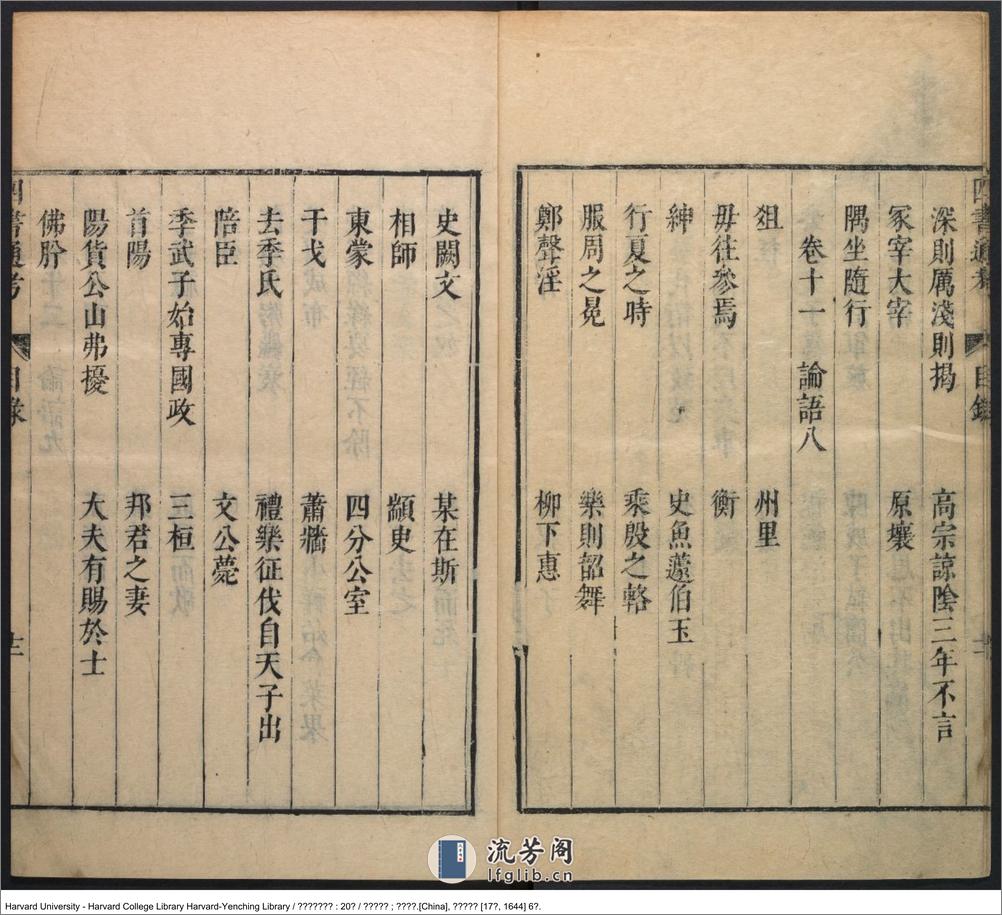 四書通考 目錄
深則厲淺則揭 高宗諒陰三年不言
冢宰大宰 原壤
隅坐隨行
卷十一 論語八
俎 州里
毋往參焉 衡
紳 史魚蘧伯玉
行夏之時 乘殷之輅
服周之冕 樂則韶舞
鄭聲淫 柳下惠
史闕文 某在斯
相師 顓臾
東蒙 四分公室
干戈 蕭牆
去季氏 禮樂征伐自天子出
陪臣 文公薨
季武子始專國政 三桓
首陽 邦君之妻
陽貨公山弗擾 大夫有賜於士
佛肸
四書通考 目錄
流芳阁
lfglib.cn
Harvard University - Harvard College Library Harvard-Yenching Library / ??????? : 20? / ????? ; ????.[China], ????? [17?, 1644] 6?.